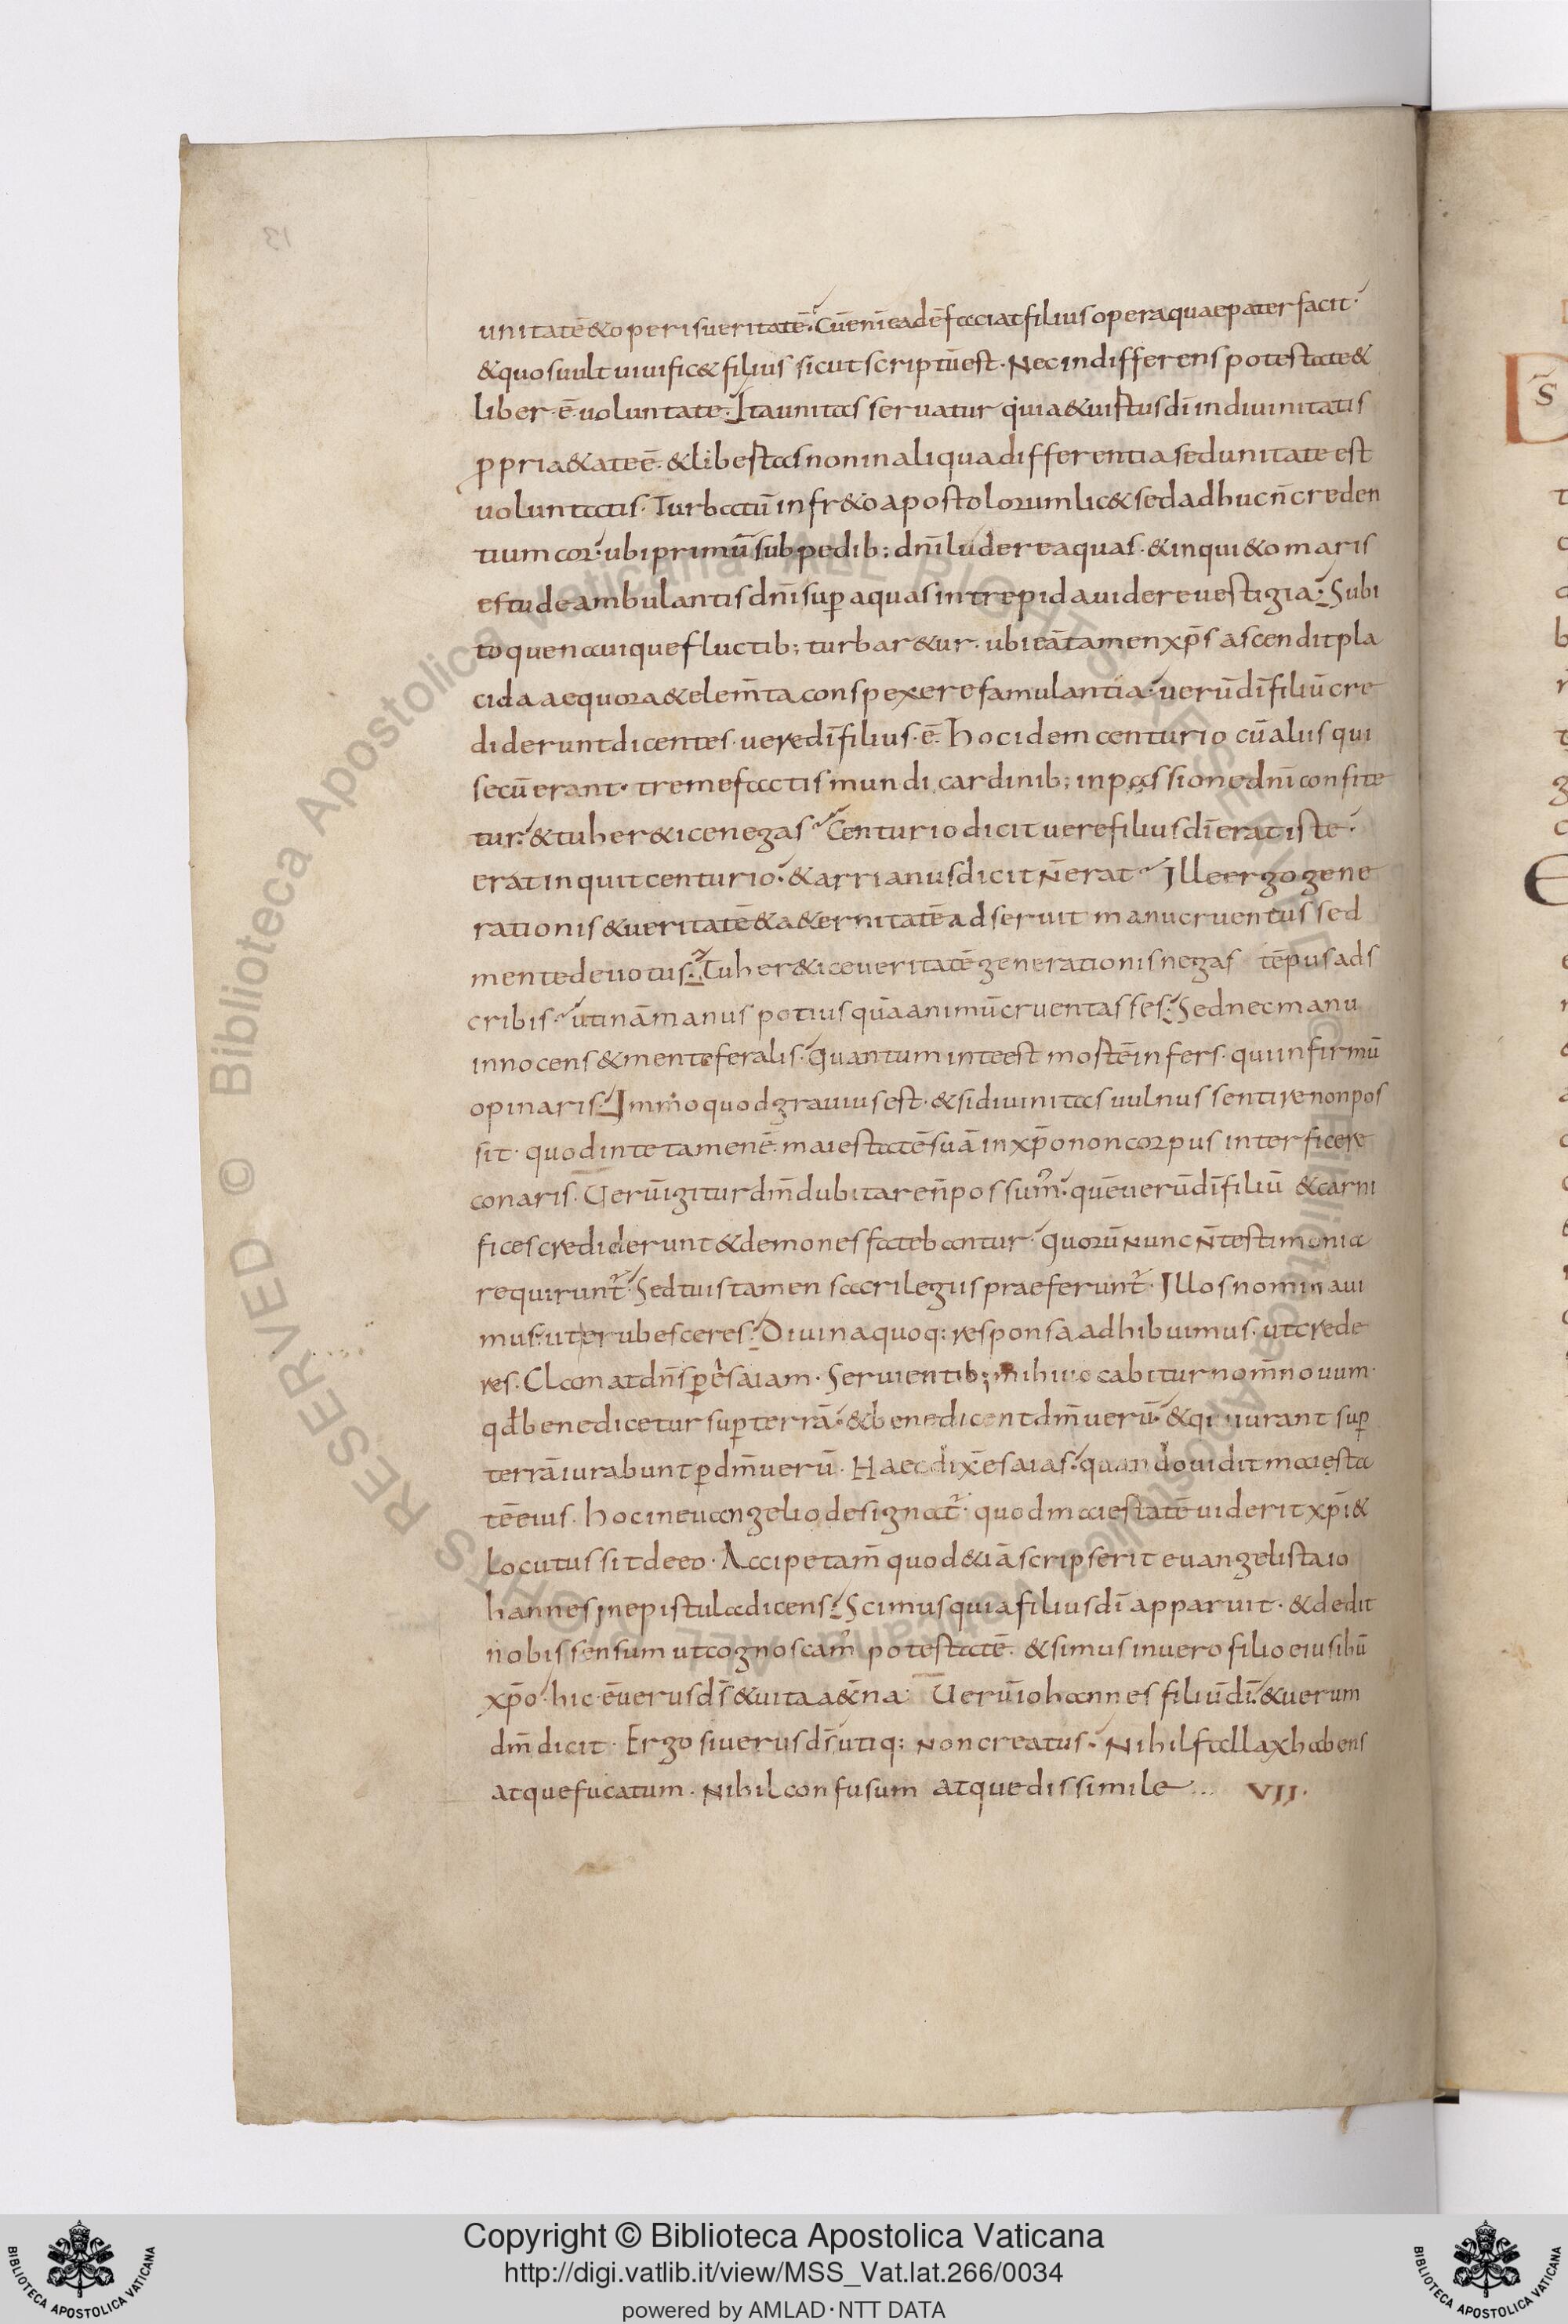 unitatē & operis ueritatē. Cū enī eadē faciat filius opera quae pater facit.
& quos uult uiuific& filius sicut scriptū est. Nec indifferens potestate &
liber. ē. uoluntate. Ita unitas seruatur quia & uistus dī in diuinitatis
ppria&ate ē. & libestas non in aliqua differentia sed unitate est
uoluntatis. Turbatū in fr&o apostolorum lic& sed adhuc n̄ creden
tium cor. ubi primū sub pedib; dn̄i ludere aquas. & inqui&o maris
estu deambulantis dn̄i sup aquas intrepida uidere uestigia. Subi
to quen auique fluctib; turbar&ur. ubi eā tamen xp̄s ascendit pla
cida aequora & elem̄ta conspexere famulantia. uerū dī filiū cre
diderunt dicentes. uere dī filius. ē. hoc idem centurio cū aliis qui
secū erant. tremefactis mundi cardinib; in passione dn̄i confite
tur. & tu her&ice negas. Centurio dicit uere filius dī erat iste.
erat inquit centurio. & arrianus dicit n̄ erat. Ille ergo gene
rationis & ueritatē & a&ernitatē adseruit manu cruentus sed
mente deuotus. Tu her&ice ueritatē generationis negas tēpus ads
cribis. utinā manus potius quā animū cruentasses. Sed nec manu
innocens & mente feralis. quantum inteest mostē infers. qui infirmū
opinaris. Immo quod grauius est. & si diuinitas uulnus sentire non pos
sit. quod in te tamen ē. maiestatē suā in xp̄o non corpus interficere
conaris. Uerū igitur dm̄ dubitare n̄ possum̓. quē uerū dī filiū & carni
fices crediderunt & demones fatebantur. quorū nunc n̄ testimonia
requirunt̓. Sed tuis tamen sacrilegiis praeferunt̓. Illos nominaui
mus. ut erubesceres. Diuina quoq: responsa adhibuimus. ut crede
res. Clamat dn̄s p esaiam. Seruientib; mihi uocabitur nom̄ nouum.
qd̄ benedicetur sup terrā. & benedicent dm̄ uerū. & qui iurant sup
terrā iurabunt p dm̄ uerū. Haec dix̄ esaias. quando uidit maiesta
tē eius. hoc in euangelio designat̓. quod maiestatē uiderit xp̄i &
locutus sit de eo. Accipe tam̄ quod &iā scripserit euangelista io
hannes in epistula dicens. Scimus quia filius dī apparuit. & dedit
nobis sensum ut cognoscam̓ potestatē. & simus in uero filio eius ihū
xp̄o. hic. ē uerus ds̄ & uita a&n̄a. Uerū iohannes filiū dī. & uerum
dm̄ dicit. Ergo si uerus ds̄ utiq: non creatus. Nihil fallax habens
atque fucatum. Nihil confusum atque dissimile... VII.
Copyright © Biblioteca Apostolica Vaticana
http://digi.vatlib.it/view/MSS_Vat.lat.266/0034
powered by AMLAD·NTT DATA